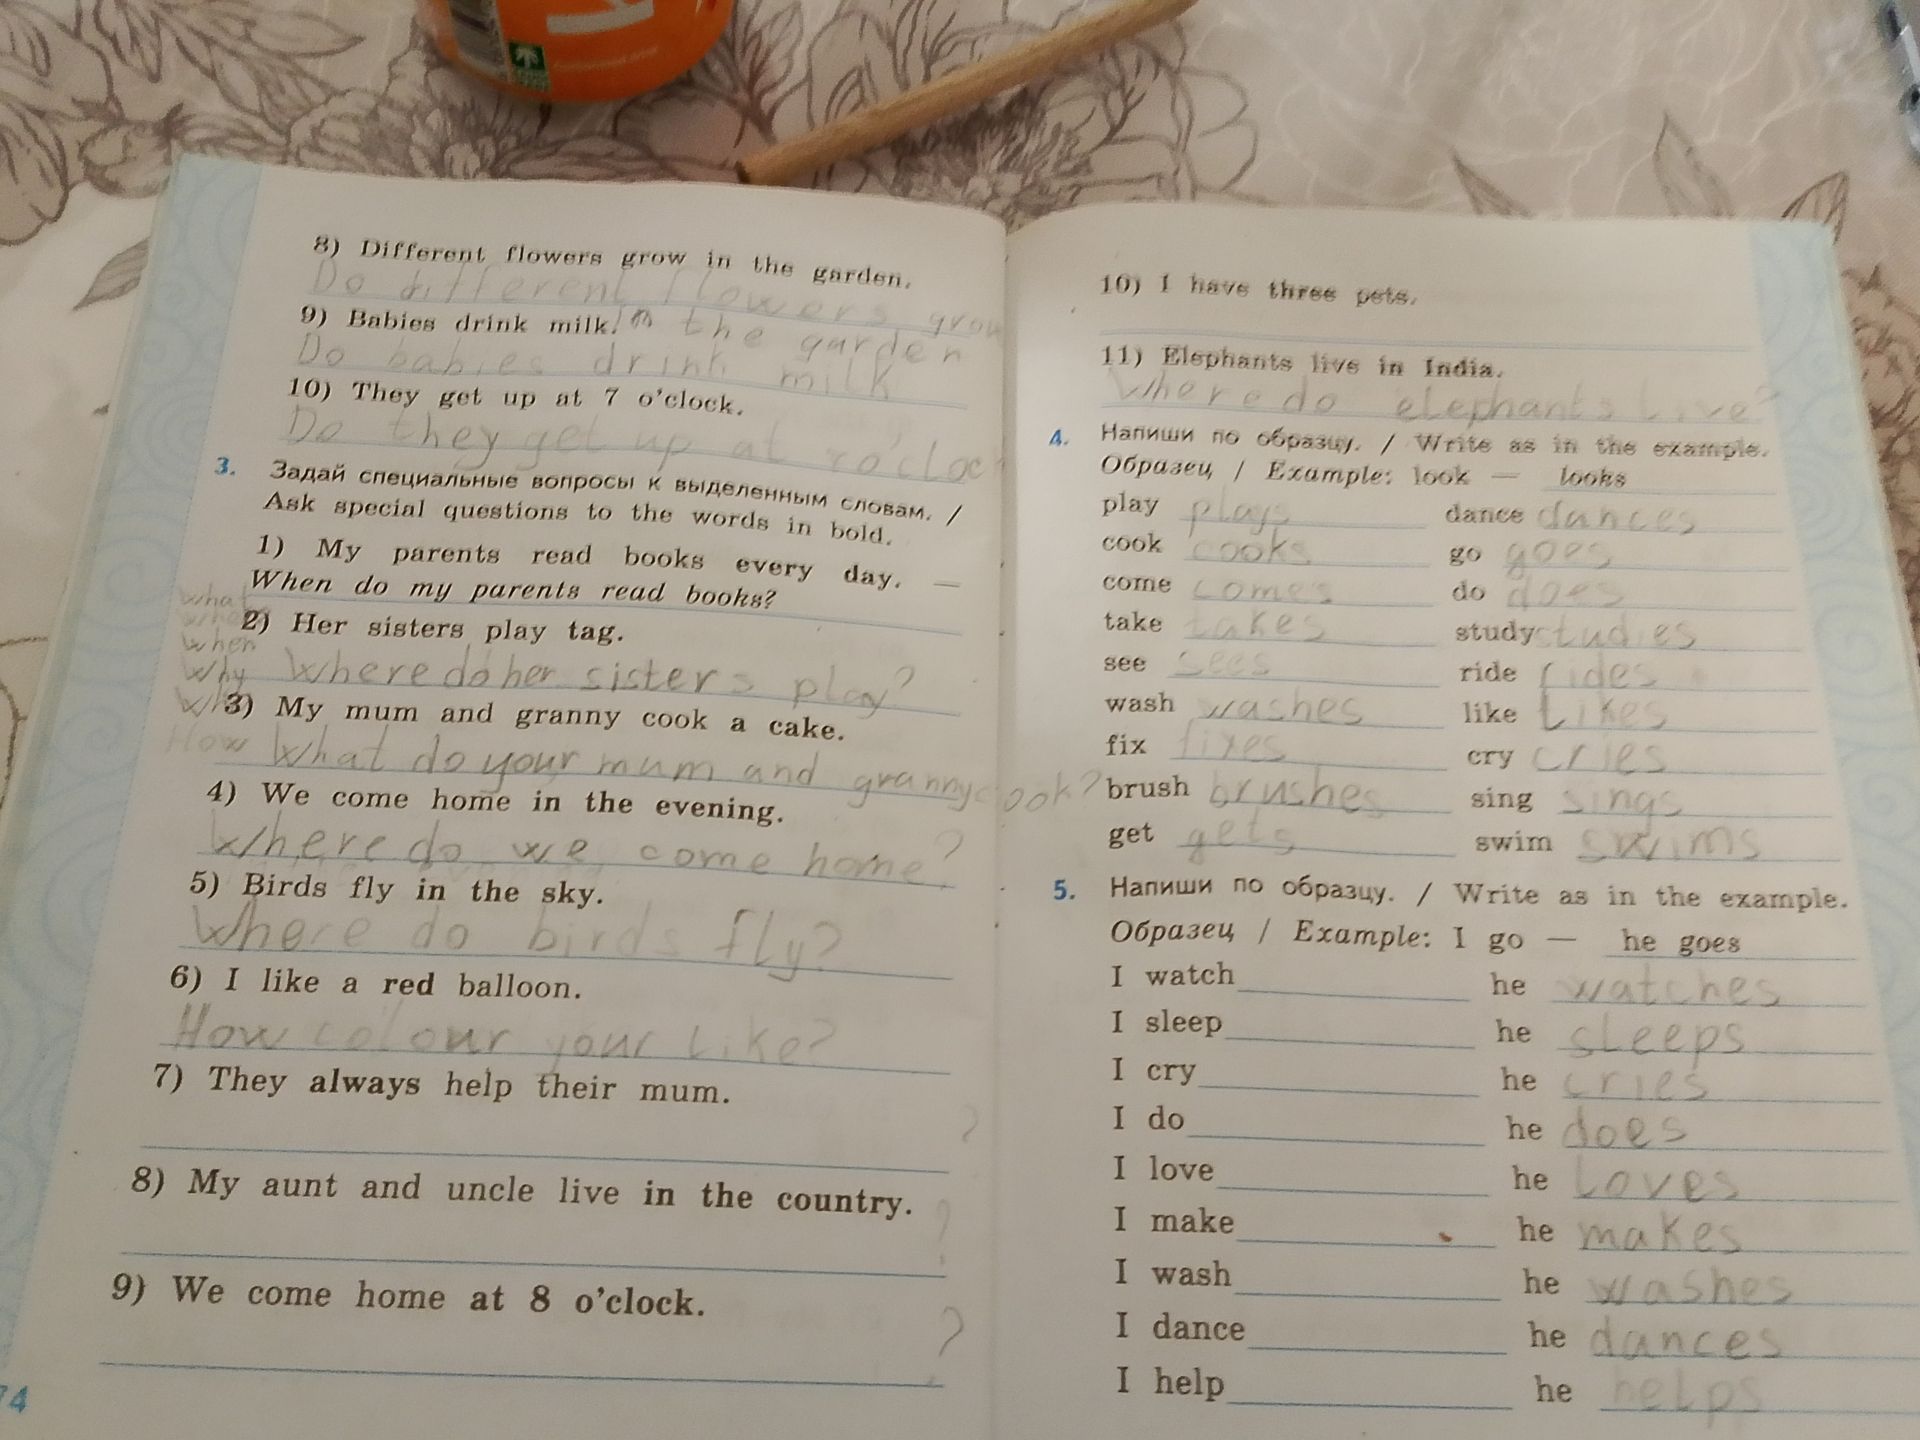 8) Different flowers grow in the garden.
Do different flowers grow
in the garden
9) Babies drink milk.
Do babies drink milk
10) They get up at 7 o'clock.
Do they get up at
3. Задай специальные вопросы к выделенным словам. /
Ask special questions to the words in bold.
1) My parents read books every day. —
When do my parents read books?
What
When
Why
How
2) Her sisters play tag.
Where do her sisters play?
3) My mum and granny cook a cake.
What do your mum and granny cook?
4) We come home in the evening.
Where do we come home?
5) Birds fly in the sky.
Where do birds fly?
6) I like a red balloon.
How colour your like?
7) They always help their mum.
?
8) My aunt and uncle live in the country.
?
9) We come home at 8 o'clock.
?
74
10) I have three pets.
11) Elephants live in India.
Where do elephants live?
4. Напиши по образцу. / Write as in the example.
Образец / Example: look — looks
play plays dance dances
cook cooks go goes
come comes do does
take takes study studies
see sees ride rides
wash washes like likes
fix fixes cry cries
brush brushes sing sings
get gets swim swims
5. Напиши по образцу. / Write as in the example.
Образец / Example: I go — he goes
I watch he watches
I sleep he sleeps
I cry he cries
I do he does
I love he loves
I make he makes
I wash he washes
I dance he dances
I help he helps